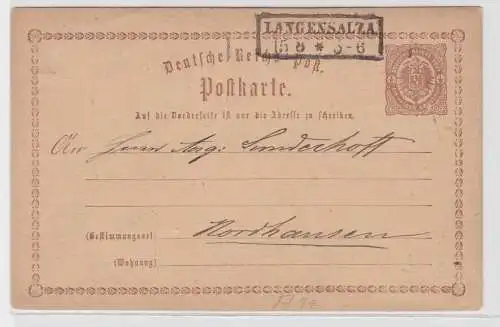 LANGENSALZA
15 8 * 5-6
Deutsche Reichs-Post.
Postkarte.
Auf die Vorderseite ist nur die Adresse zu schreiben.
An Herrn Aug: Sonderhoff
Nordhausen
(Bestimmungsort)
(Wohnung)